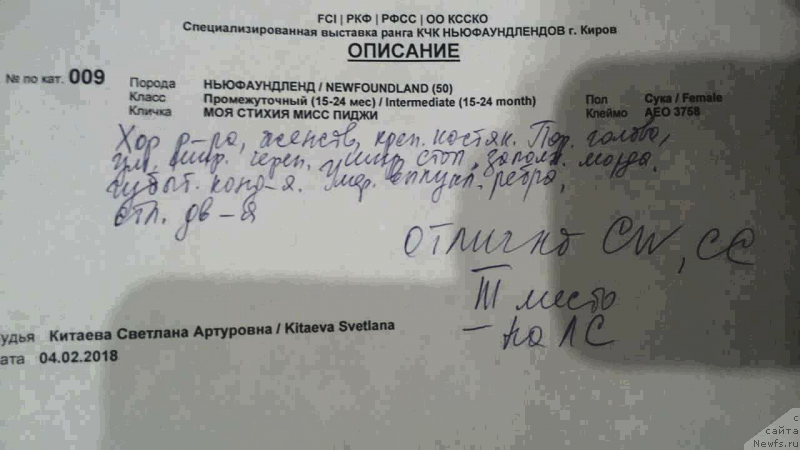 FCI | РКФ | РФСС | ОО КССКО
Специализированная выставка ранга КЧК НЬЮФАУНДЛЕНДОВ г. Киров
ОПИСАНИЕ
№ по кат. 009
Порода НЬЮФАУНДЛЕНД / NEWFOUNDLAND (50)
Класс Промежуточный (15-24 мес) / Intermediate (15-24 month) Пол Сука / Female
Кличка МОЯ СТИХИЯ МИСС ПИДЖИ Клеймо AEO 3758
Хор р-ра, женств, креп. костяк. Пор. голова,
шир. череп. стоп, заполн. морда.
конд-я. Умер. выпукл. ребра,
отл. дв-я
отлично CW, CC
III место
- на ЛС
удья Китаева Светлана Артуровна / Kitaeva Svetlana
ата 04.02.2018
с сайта
Newfs.ru